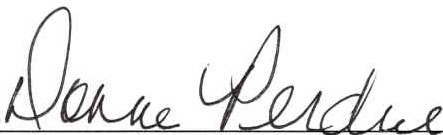 Donna Perdue